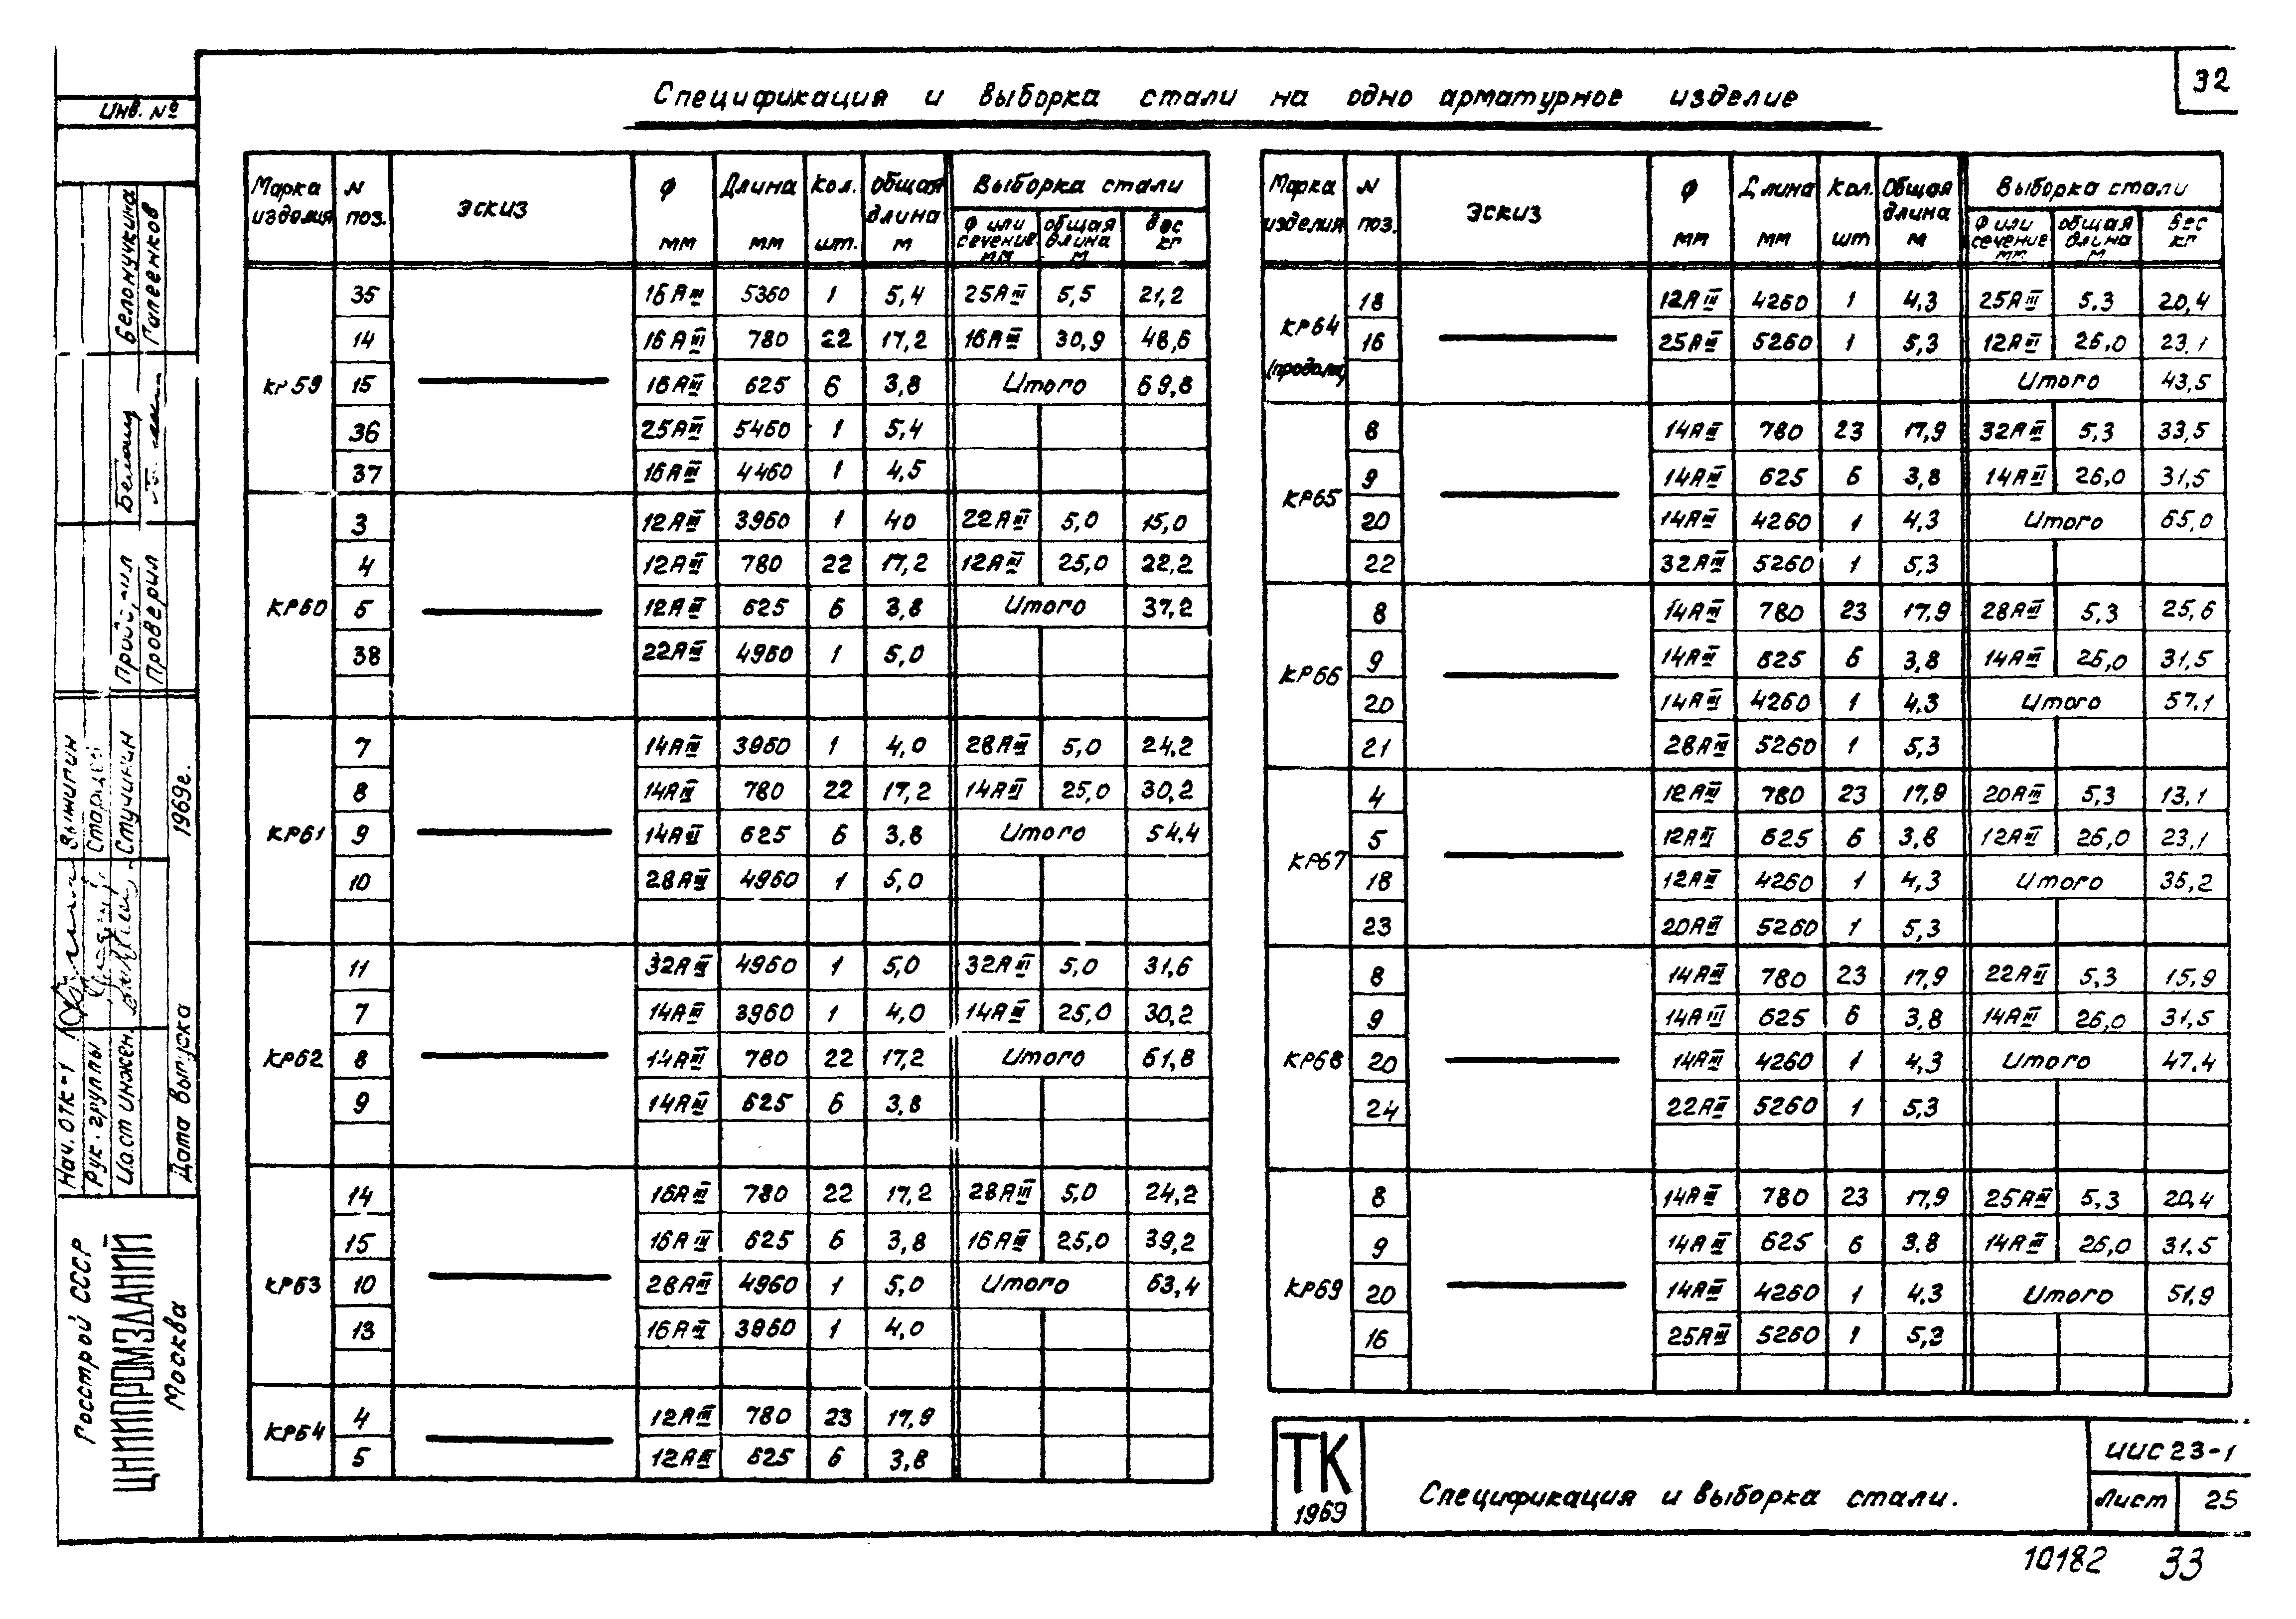 32
Спецификация и выборка стали на одно арматурное изделие
Инв. №
Марка изделия | N поз. | Эскиз | Ф мм | Длина мм | Кол. шт. | Общая длина м | Выборка стали
Ф или сечение мм | общая длина м | вес кг
КР59
35 | 16АIII | 5360 | 1 | 5,4 | 25АIII | 5,5 | 21,2
14 | 16АIII | 780 | 22 | 17,2 | 16АIII | 30,9 | 48,6
15 | 16АIII | 625 | 6 | 3,8 | Итого | 69,8
36 | 25АIII | 5460 | 1 | 5,4
37 | 16АIII | 4460 | 1 | 4,5
КР60
3 | 12АIII | 3960 | 1 | 40 | 22АIII | 5,0 | 15,0
4 | 12АIII | 780 | 22 | 17,2 | 12АIII | 25,0 | 22,2
5 | 12АIII | 625 | 6 | 3,8 | Итого | 37,2
38 | 22АIII | 4960 | 1 | 5,0
КР61
7 | 14АIII | 3960 | 1 | 4,0 | 28АIII | 5,0 | 24,2
8 | 14АIII | 780 | 22 | 17,2 | 14АIII | 25,0 | 30,2
9 | 14АIII | 625 | 6 | 3,8 | Итого | 54,4
10 | 28АIII | 4960 | 1 | 5,0
КР62
11 | 32АIII | 4960 | 1 | 5,0 | 32АIII | 5,0 | 31,6
7 | 14АIII | 3960 | 1 | 4,0 | 14АIII | 25,0 | 30,2
8 | 14АIII | 780 | 22 | 17,2 | Итого | 61,8
9 | 14АIII | 625 | 6 | 3,8
КР63
14 | 16АIII | 780 | 22 | 17,2 | 28АIII | 5,0 | 24,2
15 | 16АIII | 625 | 6 | 3,8 | 16АIII | 25,0 | 39,2
10 | 28АIII | 4960 | 1 | 5,0 | Итого | 63,4
13 | 16АIII | 3960 | 1 | 4,0
КР64
4 | 12АIII | 780 | 23 | 17,9
5 | 12АIII | 625 | 6 | 3,8
Марка изделия | N поз. | Эскиз | Ф мм | Длина мм | Кол. шт | Общая длина м | Выборка стали
Ф или сечение мм | общая длина м | вес кг
КР64 (продолж)
18 | 12АIII | 4260 | 1 | 4,3 | 25АIII | 5,3 | 20,4
16 | 25АIII | 5260 | 1 | 5,3 | 12АIII | 26,0 | 23,1
Итого | 43,5
КР65
8 | 14АIII | 780 | 23 | 17,9 | 32АIII | 5,3 | 33,5
9 | 14АIII | 625 | 6 | 3,8 | 14АIII | 26,0 | 31,5
20 | 14АIII | 4260 | 1 | 4,3 | Итого | 65,0
22 | 32АIII | 5260 | 1 | 5,3
КР66
8 | 14АIII | 780 | 23 | 17,9 | 28АIII | 5,3 | 25,6
9 | 14АIII | 625 | 6 | 3,8 | 14АIII | 26,0 | 31,5
20 | 14АIII | 4260 | 1 | 4,3 | Итого | 57,1
21 | 28АIII | 5260 | 1 | 5,3
КР67
4 | 12АIII | 780 | 23 | 17,9 | 20АIII | 5,3 | 13,1
5 | 12АIII | 625 | 6 | 3,8 | 12АIII | 26,0 | 23,1
18 | 12АIII | 4260 | 1 | 4,3 | Итого | 36,2
23 | 20АIII | 5260 | 1 | 5,3
КР68
8 | 14АIII | 780 | 23 | 17,9 | 22АIII | 5,3 | 15,9
9 | 14АIII | 625 | 6 | 3,8 | 14АIII | 26,0 | 31,5
20 | 14АIII | 4260 | 1 | 4,3 | Итого | 47,4
24 | 22АIII | 5260 | 1 | 5,3
КР69
8 | 14АIII | 780 | 23 | 17,9 | 25АIII | 5,3 | 20,4
9 | 14АIII | 625 | 6 | 3,8 | 14АIII | 26,0 | 31,5
20 | 14АIII | 4260 | 1 | 4,3 | Итого | 51,9
16 | 25АIII | 5260 | 1 | 5,3
Белонучкина
Гапеенков
Проверил
Стучинин
Нач. ОТК-1
Рук. группы
Ст инжен.
Дата выпуска 1969г.
Росстрой СССР
ЦНИИПРОМЗДАНИЙ
Москва
ТК
1969
Спецификация и выборка стали.
ИИС23-1
Лист 25
10182 33